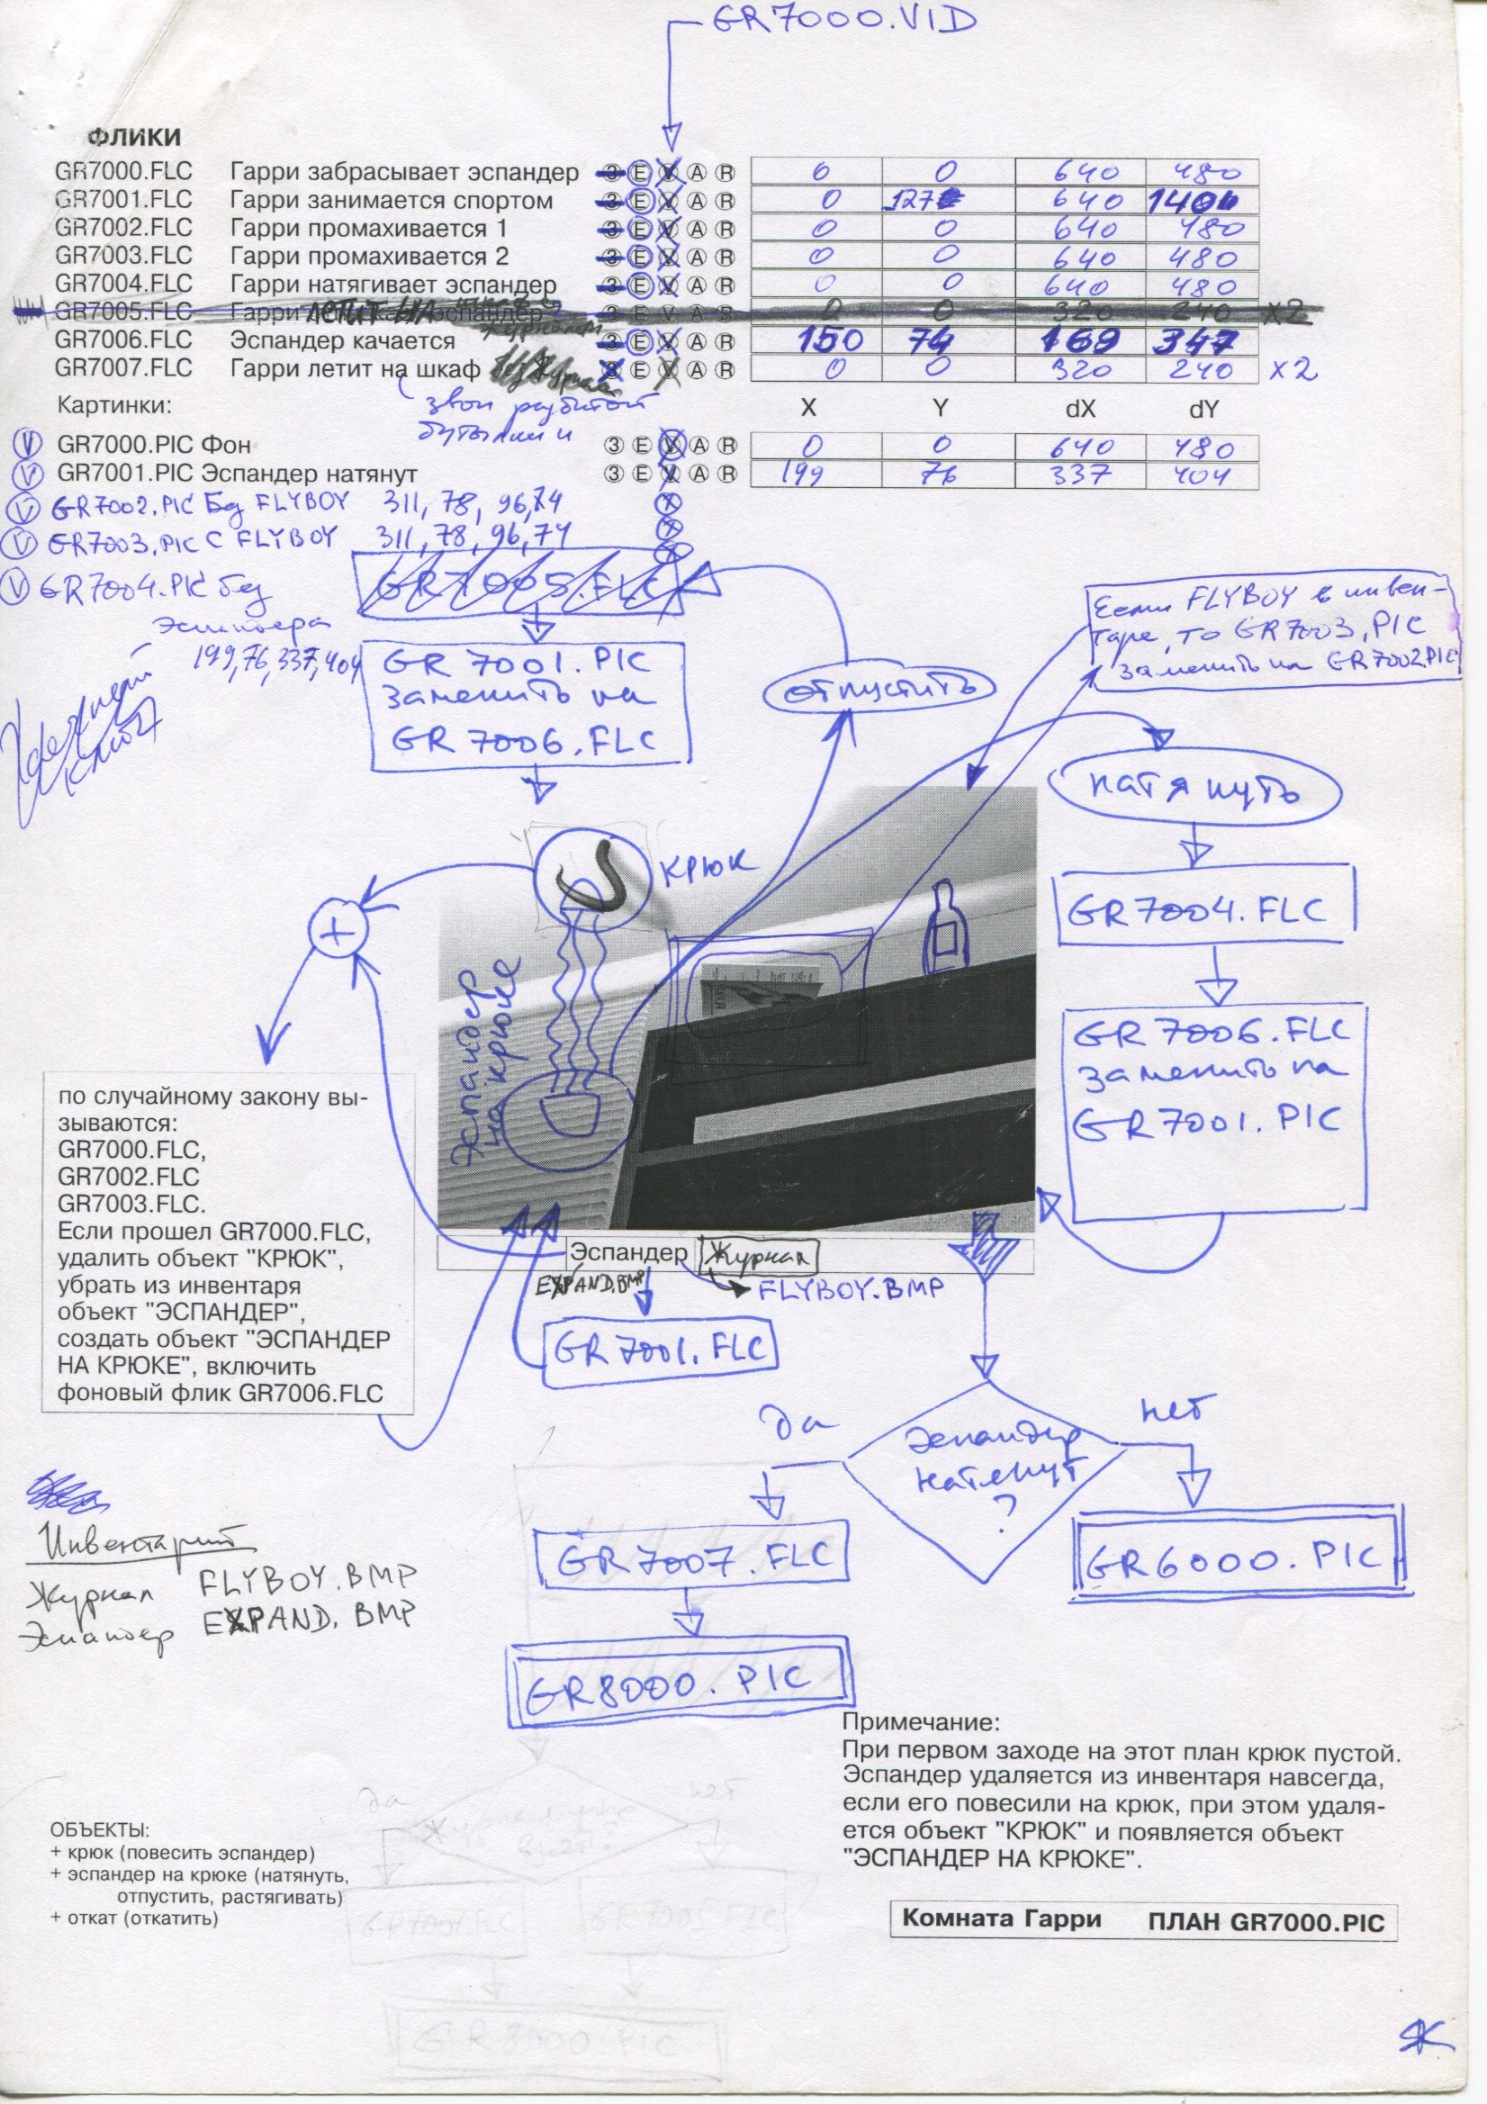 GR7000.VID
ФЛИКИ
GR7000.FLC Гарри забрасывает эспандер З E V A R 0 0 640 480
GR7001.FLC Гарри занимается спортом З E V A R 0 127 640 140
GR7002.FLC Гарри промахивается 1 З E V A R 0 0 640 480
GR7003.FLC Гарри промахивается 2 З E V A R 0 0 640 480
GR7004.FLC Гарри натягивает эспандер З E V A R 0 0 640 480
GR7005.FLC Гарри ЛЕТИТ НА эспандер З E V A R 0 0 320 240 x2
GR7006.FLC Эспандер качается З E V A R 150 74 169 347
GR7007.FLC Гарри летит на шкаф З E V A R 0 0 320 240 x2
звон разбитой
бутылки
Картинки: X Y dX dY
V GR7000.PIC Фон З E V A R 0 0 640 480
V GR7001.PIC Эспандер натянут З E V A R 199 76 337 404
V GR7002.PIC Без FLYBOY 311, 78, 96, 74
V GR7003.PIC С FLYBOY 311, 78, 96, 74
V GR7004.PIC без
эспандера
199, 76, 337, 404
GR7005.FLC
GR7001.PIC
заменить на
GR7006.FLC
отпустить
Если FLYBOY в инвен-
таре, то GR7003.PIC
заменить на GR7002.PIC
натянуть
GR7004.FLC
GR7006.FLC
заменить на
GR7001.PIC
КРЮК
+
Эспандер
на крюке
по случайному закону вы-
зываются:
GR7000.FLC,
GR7002.FLC
GR7003.FLC.
Если прошел GR7000.FLC,
удалить объект "КРЮК",
убрать из инвентаря
объект "ЭСПАНДЕР",
создать объект "ЭСПАНДЕР
НА КРЮКЕ", включить
фоновый флик GR7006.FLC
Эспандер Журнал
EXPAND.BMP FLYBOY.BMP
GR7001.FLC
да
Эспандер
натянут
?
нет
GR7007.FLC
GR6000.PIC
GR8000.PIC
Инвентарий
Журнал FLYBOY.BMP
Эспандер EXPAND.BMP
Примечание:
При первом заходе на этот план крюк пустой.
Эспандер удаляется из инвентаря навсегда,
если его повесили на крюк, при этом удаля-
ется объект "КРЮК" и появляется объект
"ЭСПАНДЕР НА КРЮКЕ".
ОБЪЕКТЫ:
+ крюк (повесить эспандер)
+ эспандер на крюке (натянуть,
отпустить, растягивать)
+ откат (откатить)
да
нет
GR8000.PIC
Комната Гарри ПЛАН GR7000.PIC